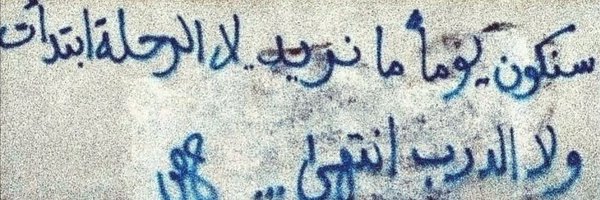 سنكون يوماً ما نريد.. لا الرحلة ابتدأت
ولا الدرب انتهى...